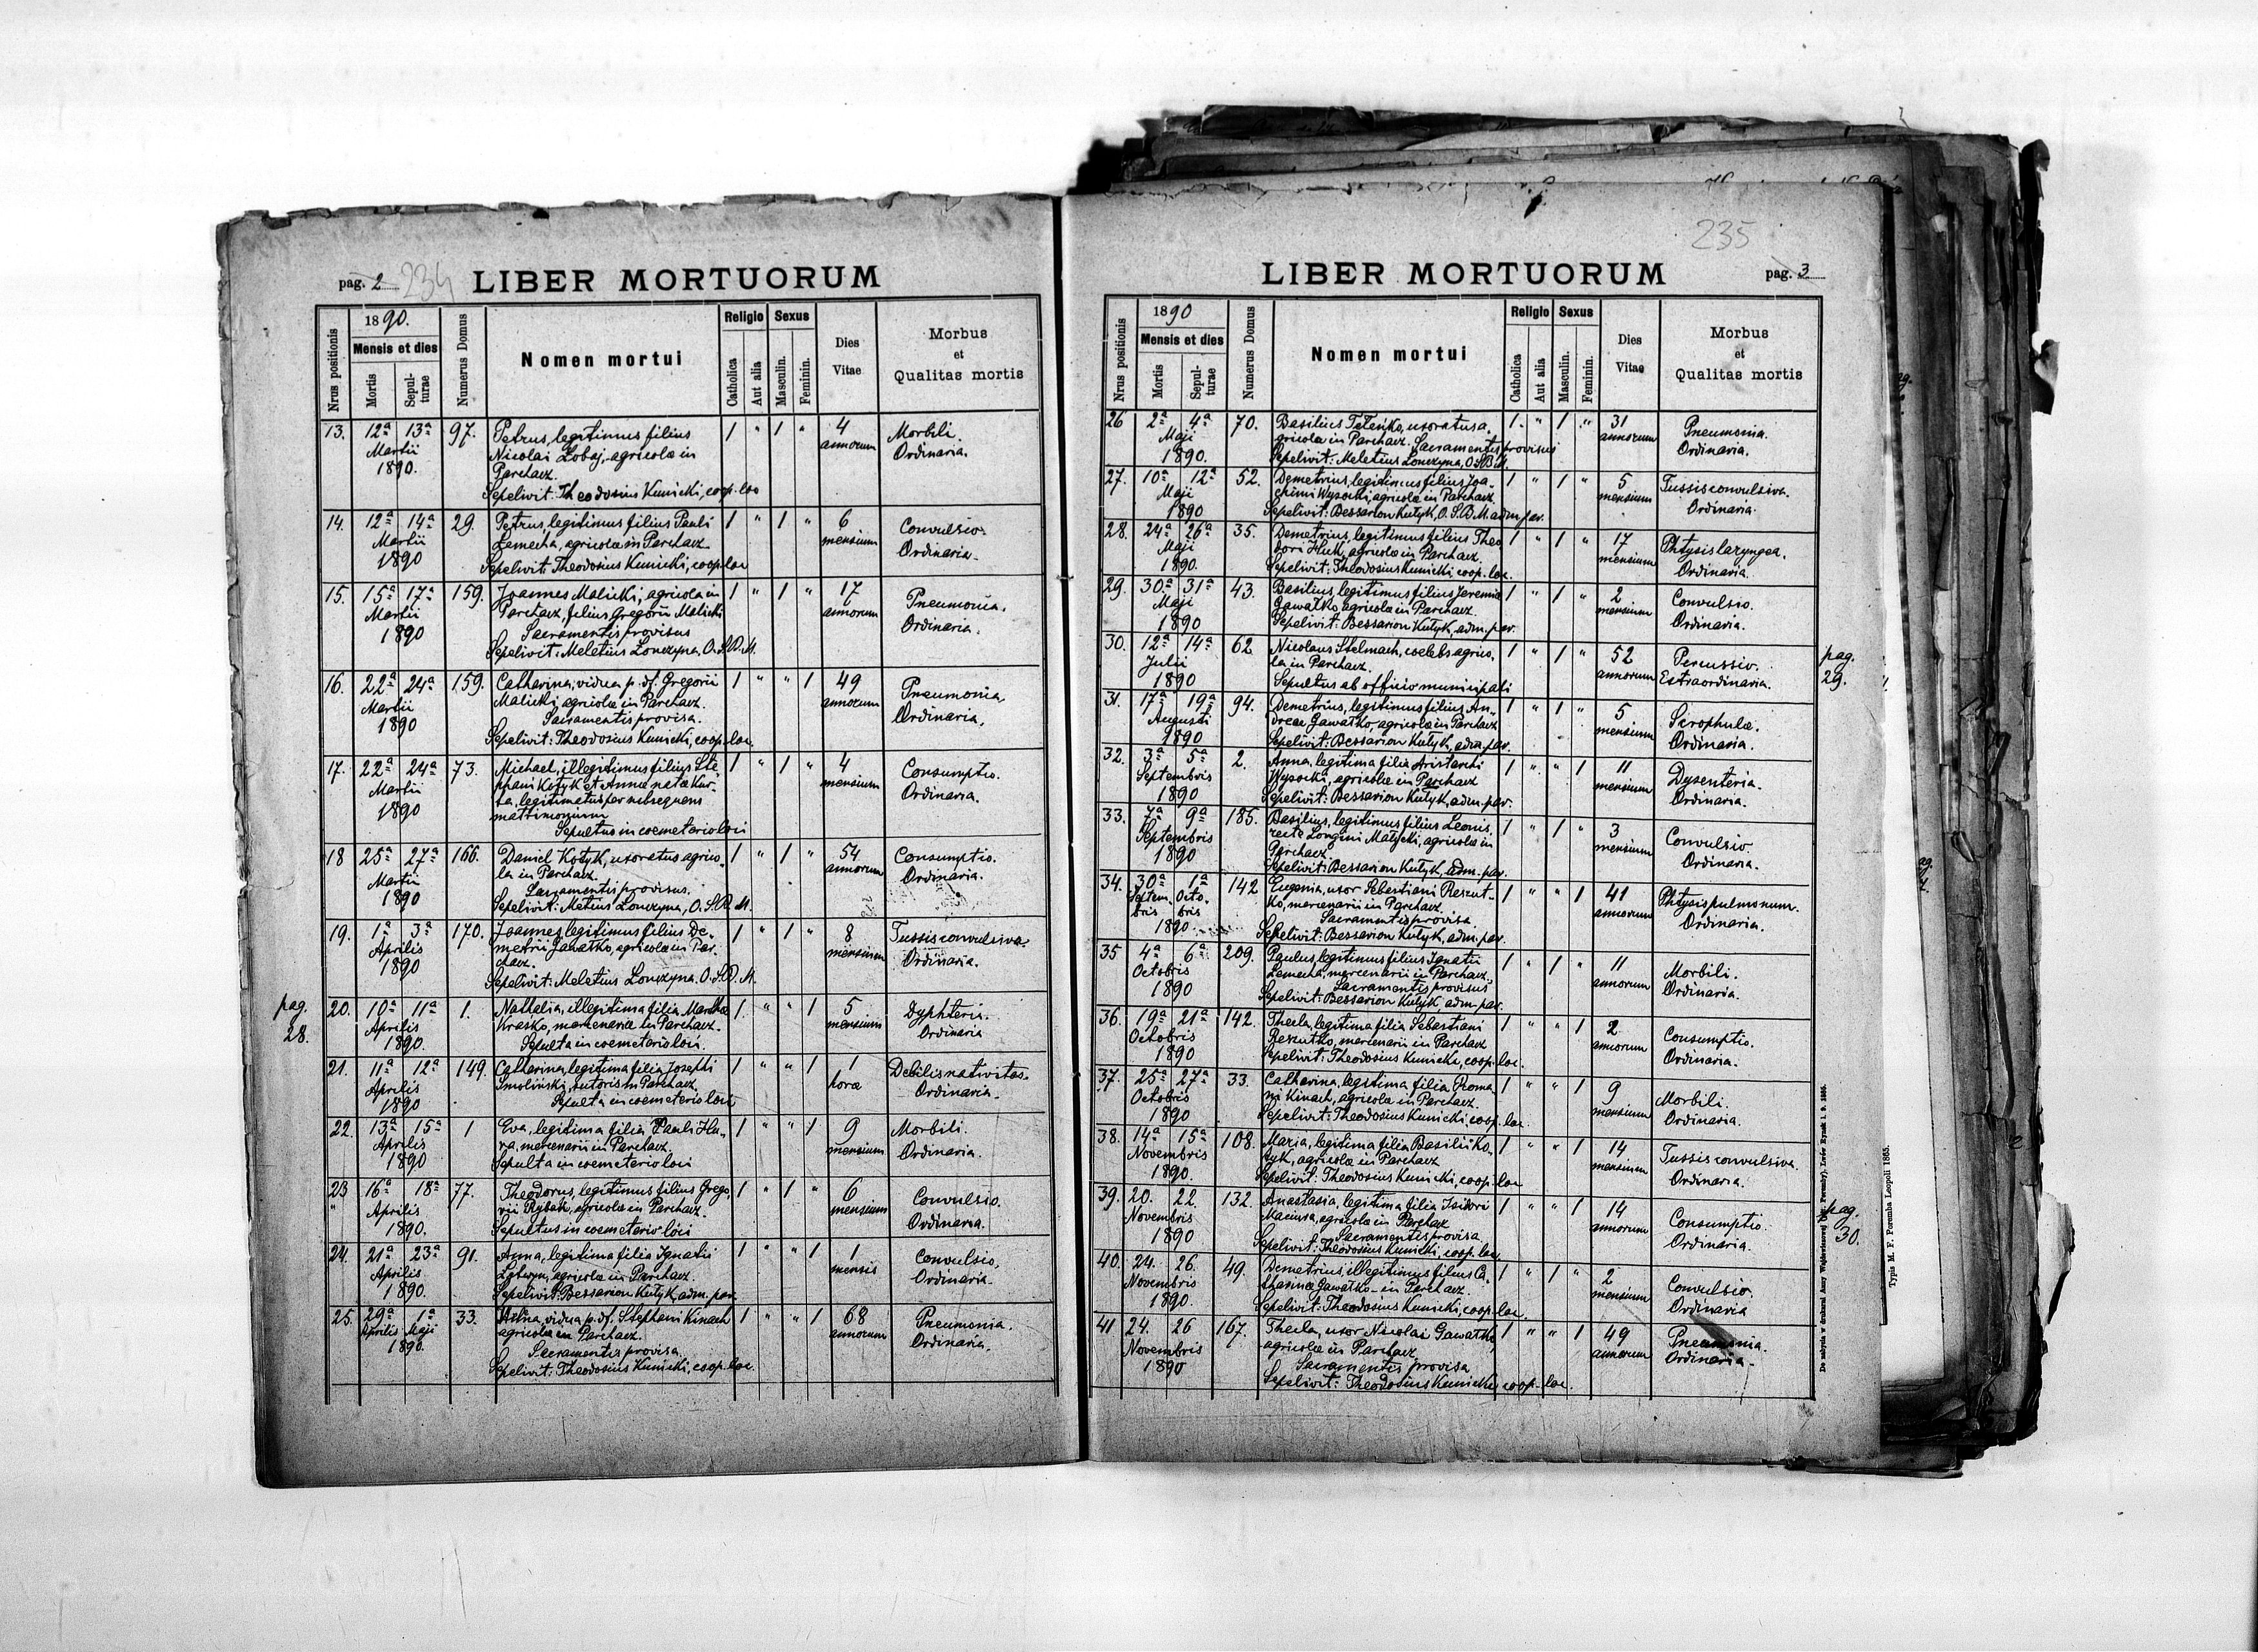 pag. 2 234 LIBER MORTUORUM
Nrus positionis
1890.
Mensis et dies
Mortis
Sepul-
turae
Numerus Domus
Nomen mortui
Religio
Catholica
Aut alia
Sexus
Masculin.
Feminin.
Dies
Vitae
Morbus
et
Qualitas mortis
13. 12a 13a 97. Petrus, legitimus filius 1 " 1 " 4 Morbili.
Martii Nicolai Łobaj, agricolæ in annorum Ordinaria.
1890. Parchacz.
Sepelivit: Theodosius Kunicki, coop. loc
14. 12a 14a 29. Petrus, legitimus filius Pauli 1 " 1 " 6 Convulsio.
Martii Lemecha, agricolæ in Parchacz mensium Ordinaria.
1890 Sepelivit: Theodosius Kunicki, coop. loc
15. 15a 17a 159. Joannes Malicki, agricola in 1 " 1 " 17 Pneumonia.
Martii Parchacz, filius Gregorii Malicki annorum Ordinaria.
1890 Sacramentis provisus
Sepelivit: Meletius Łonczyna, O.S.B.M.
16. 22a 24a 159. Catharina, vidua p. df. Gregorii 1 " " 1 49 Pneumonia.
Martii Malicki agricolæ in Parchacz. annorum Ordinaria.
1890 Sacramentis provisa.
Sepelivit: Theodosius Kunicki, coop. loc.
17. 22a 24a 73. Michael, illegitimus filius Ste- 1 " 1 " 4 Consumptio.
Martii phani Kotyk et Annæ natæ Kur- mensium Ordinaria.
1890 ta, legitimatus per subsequens
matrimonium
Sepultus in coemeterio loci
18 25a 27a 166. Daniel Kotyk, uxoratus agrico- 1 " 1 " 54 Consumptio.
Martii la in Parchacz. annorum Ordinaria.
1890 Sacramentis provisus.
Sepelivit: Metius Łonczyna, O.S.B.M.
19. 1a 3a 170. Joannes, legitimus filius De- 1 " 1 " 8 Tussis convulsiva.
Aprilis metrii Gawałko, agricolæ in Par- mensium Ordinaria.
1890 chacz.
Sepelivit: Meletius Łonczyna O.S.B.M.
pag.
28.
20. 10a 11a 1. Nathalia, illegitima filia Marthæ 1. " " 1 5 Dyphteris.
Aprilis Krasko, mercenariæ in Parchacz. mensium Ordinaria
1890. Sepulta in coemeterio loci.
21. 11a 12a 149. Catharina, legitima filia Josephi 1 " " 1 1 Debilis nativitas.
Aprilis Smoliński, sutoris in Parchacz, hora Ordinaria.
1890 Sepulta in coemeterio loci
22. 13a 15a 1 Eva, legitima filia Pauli Hu- 1 " " 1 9 Morbili.
Aprilis ra, mercenarii in Parchacz. mensium Ordinaria.
1890 Sepulta in coemeterio loci
23 16a 18a 77. Theodorus, legitimus filius Grego- 1 " 1 " 6 Convulsio.
Aprilis rii Rybak, agricolæ in Parchacz. mensium Ordinaria.
1890. Sepultus in coemeterio loci
24. 21a 23a 91. Anna, legitima filia Ignatii 1 " " 1 1 Convulsio.
Aprilis agricolæ in Parchacz. mensis Ordinaria.
1890. Sepelivit: Bessarion Kutyk, adm. par.
25. 29a 1a 33. Anna, vidua p. df. Stephani Kinach 1 " " 1 68 Pneumonia.
Aprilis Maji agricolæ in Parchacz. annorum Ordinaria.
1890. Sacramentis provisa.
Sepelivit: Theodosius Kunicki, coop. loc.
235
LIBER MORTUORUM pag. 3
Nrus positionis
1890
Mensis et dies
Mortis
Sepul-
turae
Numerus Domus
Nomen mortui
Religio
Catholica
Aut alia
Sexus
Masculin.
Feminin.
Dies
Vitae
Morbus
et
Qualitas mortis
26 2a 4a 70. Basilius Feteńko, uxoratus a- 1. " 1 " 31 Pneumonia.
Maji gricola in Parchacz. Sacramentis provisus annorum Ordinaria.
1890. Sepelivit: Meletius Łonczyna, O.S.B.M.
27. 10a 12a 52. Demetrius, legitimus filius Joa- 1 " 1 " 5 Tussis convulsiva.
Maji chimi Wysocki, agricolæ in Parchacz mensium Ordinaria.
1890 Sepelivit: Bessarion Kutyk, O.S.B.M. adm. par.
28. 24a 26a 35. Demetrius, legitimus filius Theo- 1 " 1 " 17 Phtysis laryngea.
Maji dori Huk, agricolæ in Parchacz. mensium Ordinaria.
1890. Sepelivit: Theodosius Kunicki coop. loc.
29. 30a 31a 43. Basilius legitimus filius Jeremiæ 1 " 1 " 2 Convulsio.
Maji Gawałko, agricolæ in Parchacz. mensium Ordinaria.
1890 Sepelivit: Bessarion Kutyk, adm. par.
30. 12a 14a 62 Nicolaus Stelmach, coelebs agrico- 1 " 1 " 52 Percussio.
Julii la in Parchacz. annorum Extraordinaria.
1890 Sepultus ab officio municipali
pag.
29.
31. 17a 19a 94. Demetrius, legitimus filius An- 1 " 1 " 5 Scrophulæ.
Augusti dreæ Gawałko, agricolæ in Parchacz mensium Ordinaria.
1890 Sepelivit: Bessarion Kutyk, adm. par.
32. 3a 5a 2. Anna, legitima filia Aristarchi 1 " " 1 11 Dysenteria.
Septembris Wysocki, agricolæ in Parchacz mensium Ordinaria.
1890 Sepelivit: Bessarion Kutyk, adm. par.
33. 7a 9a 185. Basilius, legitimus filius Leonis, 1 " 1 " 3 Convulsio
Septembris recte Longini Małycki, agricolæ in mensium Ordinaria.
1890 Parchacz.
Sepelivit: Bessarion Kutyk, adm. par.
34. 30a 1a 142 Eugenia, uxor Sebastiani Reszut- 1 " " 1 41 Phtysis pulmonum.
Septem- Octo- ko, mercenarii in Parchacz annorum Ordinaria.
bris bris Sacramentis provisa
1890. Sepelivit: Bessarion Kutyk, adm. par.
35 4a 6a 209. Paulus, legitimus filius Ignatii 1 " 1 " 11 Morbili.
Octobris Lemecha, mercenarii in Parchacz. annorum Ordinaria.
1890 Sacramentis provisus
Sepelivit: Bessarion Kutyk, adm. par.
36. 19a 21a 142. Thecla, legitima filia Sebastiani 1 " " 1 2 Consumptio.
Octobris Reszutko, mercenarii in Parchacz annorum Ordinaria.
1890 Sepelivit: Theodosius Kunicki, coop. loc.
37. 25a 27a 33. Catharina, legitima filia Roma- 1 " " 1 9 Morbili.
Octobris ni Kinach, agricolæ in Parchacz. mensium Ordinaria.
1890 Sepelivit: Theodosius Kunicki coop. loc.
38. 14a 15a 108. Maria, legitima filia Basilii Ko- 1 " " 1 14 Tussis convulsiva.
Novembris tyk, agricolæ in Parchacz mensium Ordinaria.
1890. Sepelivit: Theodosius Kunicki, coop. loc
39. 20. 22. 132. Anastasia, legitima filia Isidori 1 " " 1 14 Consumptio.
Novembris Maciura, agricolæ in Parchacz annorum Ordinaria.
1890 Sacramentis provisa
Sepelivit: Theodosius Kunicki, coop. loc.
pag.
30.
40. 24. 26. 49. Demetrius, illegitimus filius Ca- 1 " 1 " 2 Convulsio.
Novembris tharinæ Gawałko in Parchacz. mensium Ordinaria
1890. Sepelivit: Theodosius Kunicki, coop. loc.
41 24. 26 167. Thecla, uxor Nicolai Gawałko, 1 " " 1 49 Pneumonia.
Novembris agricolæ in Parchacz annorum Ordinaria.
1890 Sacramentis provisa
Sepelivit: Theodosius Kunicki, coop. loc.
Typis M. F. Poremba Leopoli 1865.